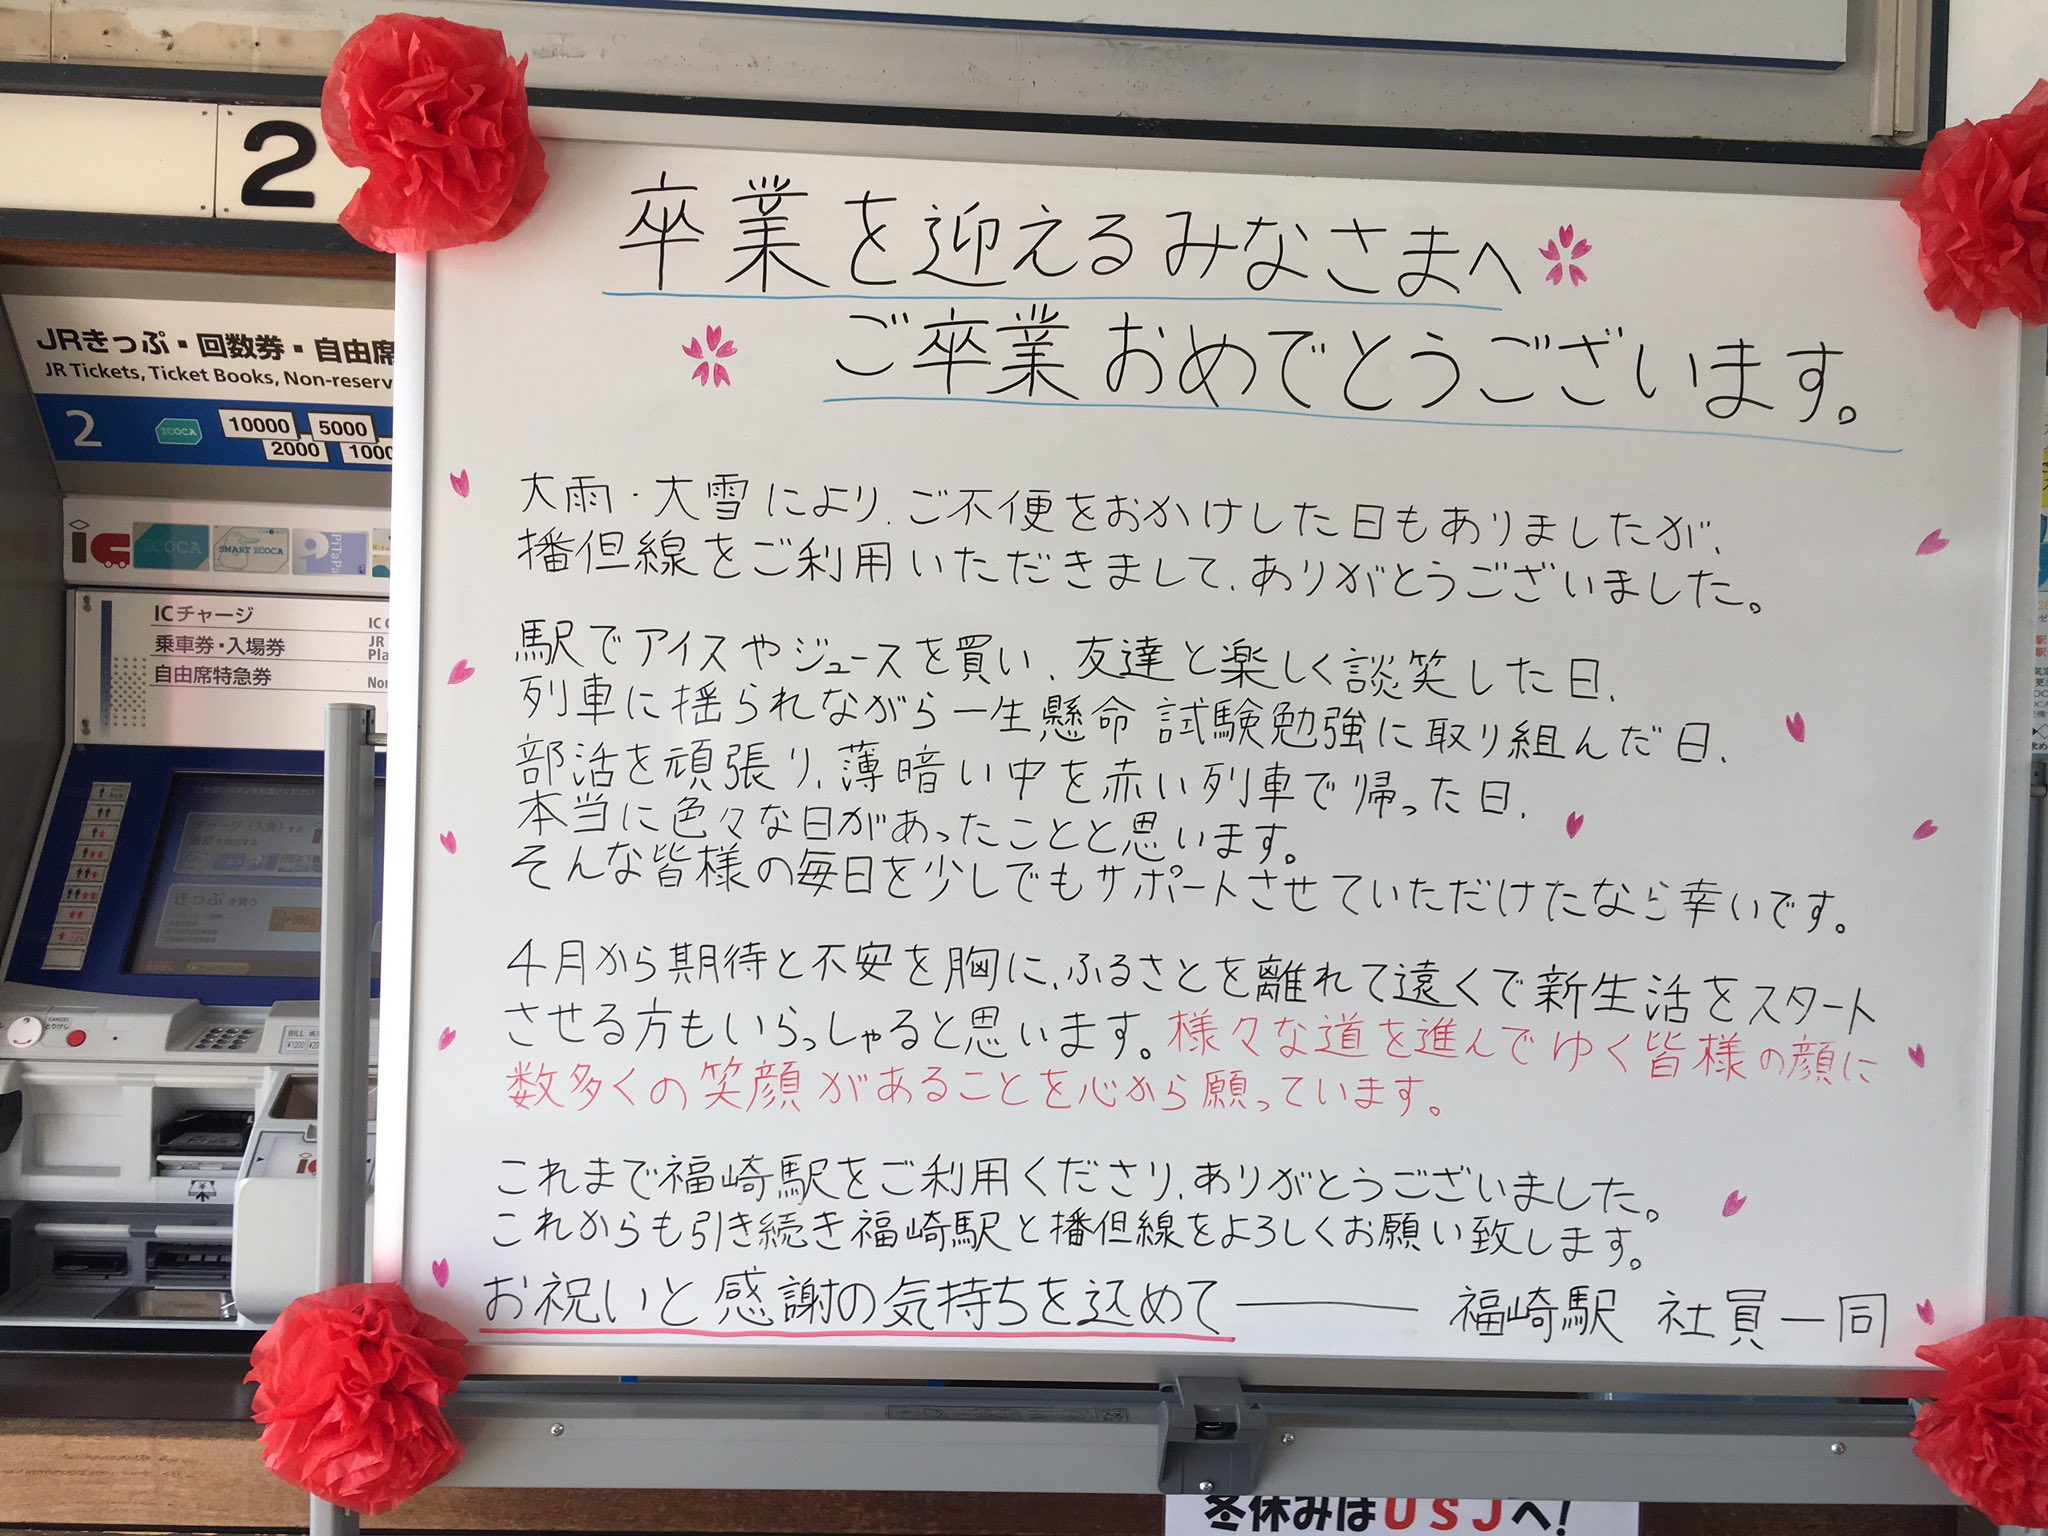 2
卒業を迎えるみなさまへ
ご卒業おめでとうございます。
JRきっぷ・回数券・自由席
JR Tickets, Ticket Books, Non-reserv
2
ICOCA
10000
5000
2000
1000
ICOCA
SMART ICOCA
PiTaPa
ICチャージ
乗車券・入場券
自由席特急券
大雨・大雪により、ご不便をおかけした日もありましたが、
播但線をご利用いただきまして、ありがとうございました。
駅でアイスやジュースを買い、友達と楽しく談笑した日、
列車に揺られながら一生懸命試験勉強に取り組んだ日、
部活を頑張り、薄暗い中を赤い列車で帰った日、
本当に色々な日があったことと思います。
そんな皆様の毎日を少しでもサポートさせていただけたなら幸いです。
4月から期待と不安を胸に、ふるさとを離れて遠くで新生活をスタート
させる方もいらっしゃると思います。様々な道を進んでゆく皆様の顔に
数多くの笑顔があることを心から願っています。
これまで福崎駅をご利用くださり、ありがとうございました。
これからも引き続き福崎駅と播但線をよろしくお願い致します。
お祝いと感謝の気持ちを込めて――― 福崎駅 社員一同
チャージ(入金)する
きっぷを買う
CANCEL
とりけし
BILL
冬休みはUSJへ!